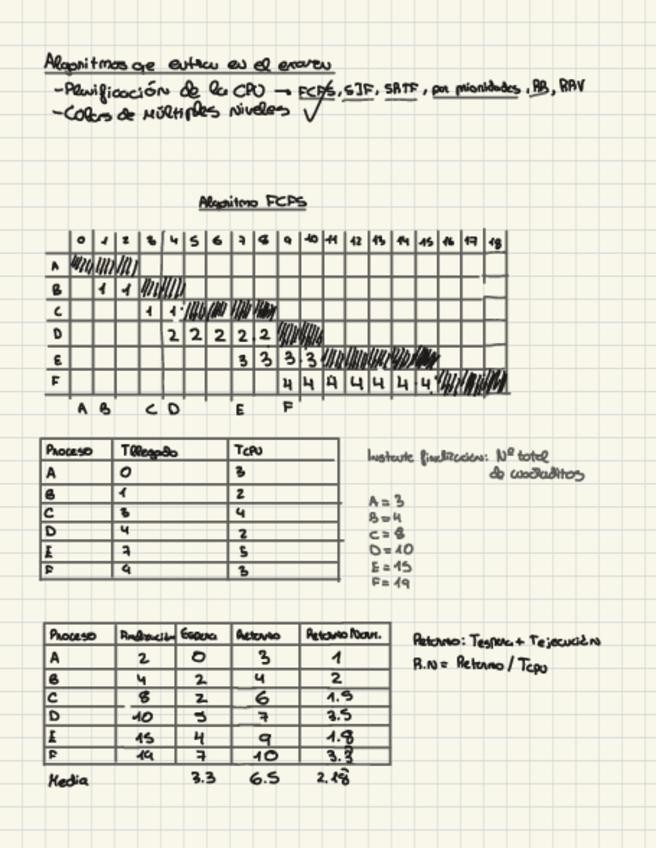 Algoritmos que entran en el examen
-Planificación de la CPU → FCFS, SJF, SRTF, por prioridades, RR, RRV
-Colas de Múltiples Niveles ✓
Algoritmo FCFS
0 1 2 3 4 5 6 7 8 9 10 11 12 13 14 15 16 17 18
A
B 1 1
C 1 1
D 2 2 2 2 2
E 3 3 3 3
F 4 4 4 4 4 4 4
A B C D E F
Proceso Tllegada TCPU
A 0 3
B 1 2
C 3 4
D 4 2
E 7 5
F 9 3
Instante finalización: Nº total
de cuadraditos
A = 3
B = 4
C = 8
D = 10
E = 15
F = 19
Proceso Finalización Espera Retorno Retorno Nor.
A 2 0 3 1
B 4 2 4 2
C 8 2 6 1.5
D 10 5 7 3.5
E 15 4 9 1.8
F 19 7 10 3.3
Media 3.3 6.5 2.18
Retorno: Tespera + Tejecución
R.N = Retorno / TCPU